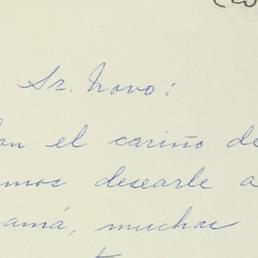 Sr. Novo:
on el cariño de
mos desearle a
amá, muchas